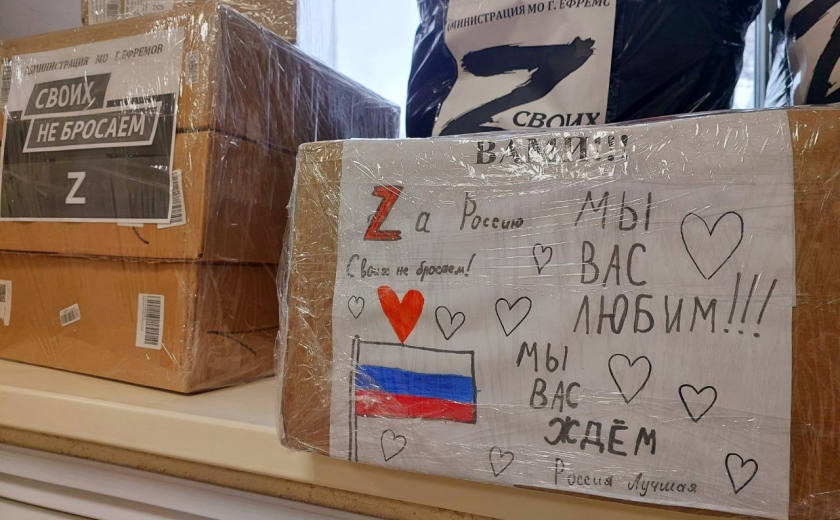 АДМИНИСТРАЦИЯ МО Г. ЕФРЕМОВ
СВОИХ
НЕ БРОСАЕМ
Z
МИНИСТРАЦИЯ МО Г. ЕФРЕМ
Z
СВОИХ
ВАМИ!!!
Zа Россию
Своих не бросаем!
МЫ
ВАС
ЛЮБИМ!!!
МЫ
ВАС
ЖДЁМ
Россия Лучшая